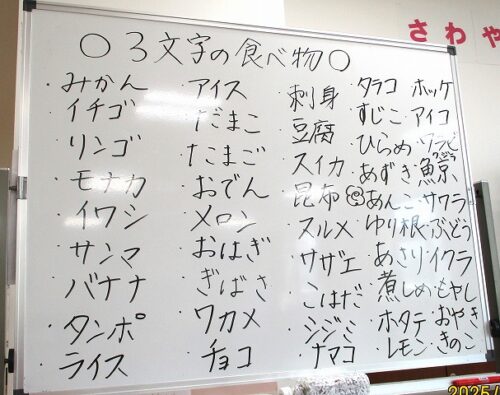 さわや
○3文字の食べ物○
・みかん
・イチゴ
・リンゴ
・モナカ
・イワシ
・サンマ
・バナナ
・タンポ
・ライス
・アイス
・だまこ
・たまご
・おでん
・メロン
・おはぎ
・ぎばさ
・ワカメ
・チョコ
・刺身
・豆腐
・スイカ
・昆布
・スルメ
・サザエ
・こはだ
・シジミ
・ナマコ
・タラコ
・すじこ
・ひらめ
・あずき
あんこ
・ゆり根
・あさり
・煮しめ
・ホタテ
・レモン
・ホッケ
・アイコ
・ワラビ
・鯨
・サワラ
・ぶどう
・イクラ
・もやし
・おやき
・きのこ
2025/